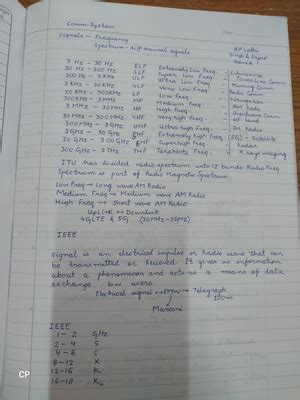 Comm. System
Signals - Frequency
BP Lathi
Spectrum - diff. diff. signals
3 Hz - 30 Hz ELF Extremely Low Freq. - Submarines
30 Hz - 300 Hz SLF Super Low Freq.
300 Hz - 3 KHz ULF Ultra low Freq. - Mining Comm.
3 KHz - 30 KHz VLF Very low Freq.
30 KHz - 300 KHz LF Low Freq. - Navigation
300 KHz - 3 MHz MF Medium Freq. - AM Radio
3 MHz - 30 MHz HF High Freq.
30 MHz - 300 MHz VHF Very high Freq.
300 MHz - 3 GHz UHF Ultra high Freq.
3 GHz - 30 GHz (5G) - Satellite
30 GHz - 300 GHz EHF - radar
300 GHz - 3 THz THF Terahertz Freq. - X rays imaging
ITU has divided radio spectrum into 12 bands Radio Freq
Spectrum is part of Radio Magnetic Spectrum.
Low Freq → Long wave AM Radio
Medium Freq → Medium wave AM Radio
High Freq → Short wave AM Radio
UpLink ↔ Downlink
4G LTE & 5G (30 MHz - 3 GHz)
IEEE
Signal is an electrical impulse or Radio wave that can
be transmitted or Recieved. It gives us information
about a phenomenon and acts as a means of data
exchange b.w. users.
Electrical signal ↔ EMW → Telegraph
Marconi
100m
IEEE
1 - 2 GHz
2 - 4 S
4 - 8 C
8 - 12 X
12 - 16
16 - 18
CP